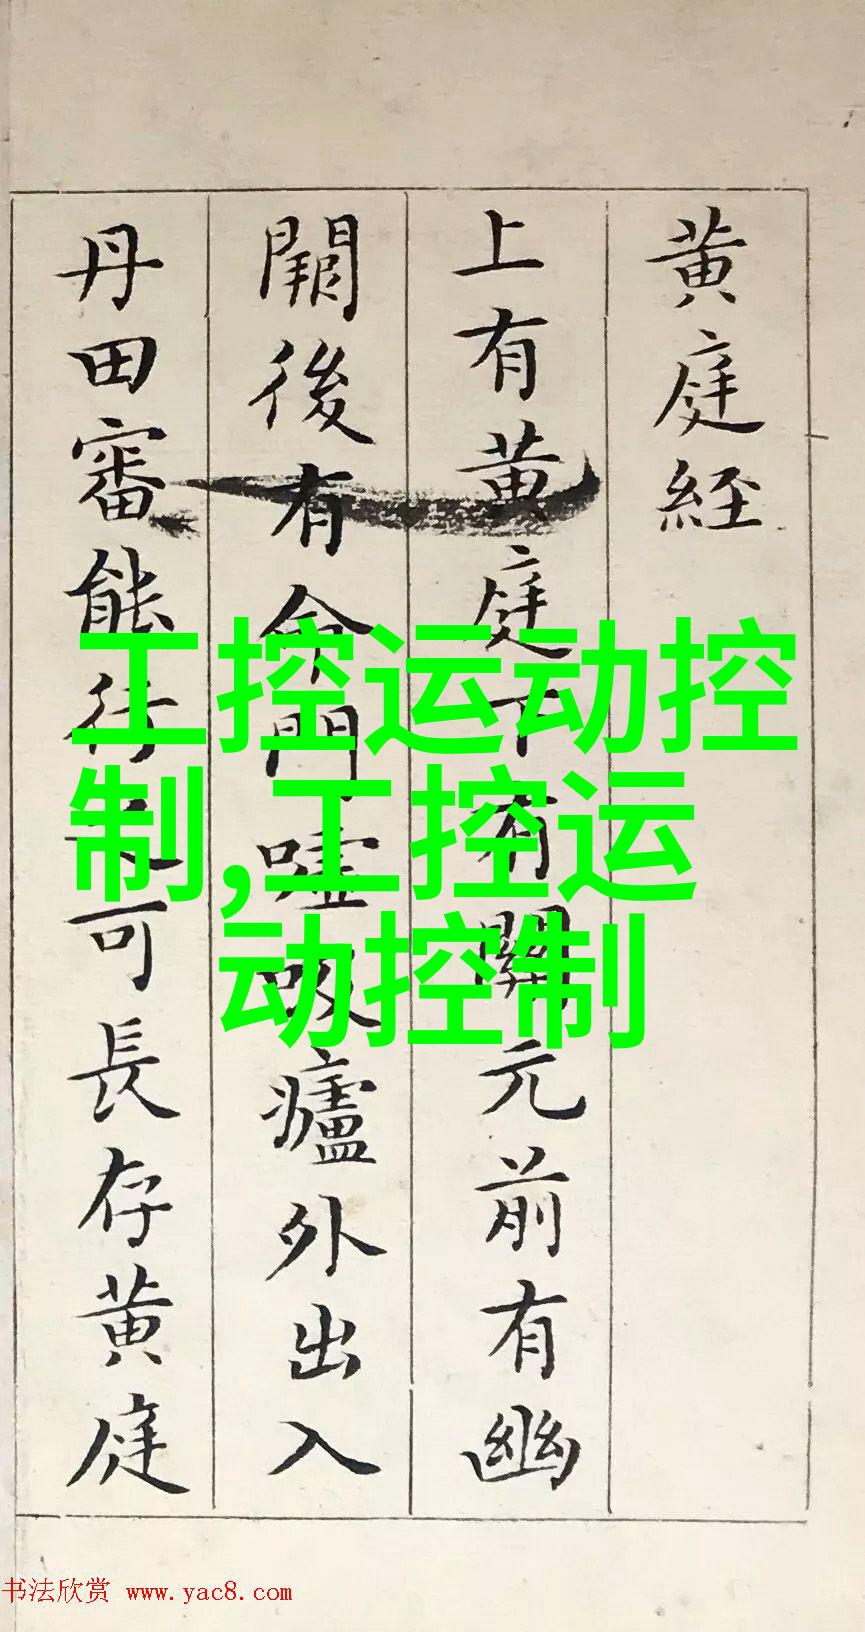 黄庭経
上有黄庭下有關元前有幽
闕後有命門嘘吸廬外出入
丹田審能行之可長存黄庭
工控运动控
制,工控运
动控制
书法欣赏 www.yac8.com